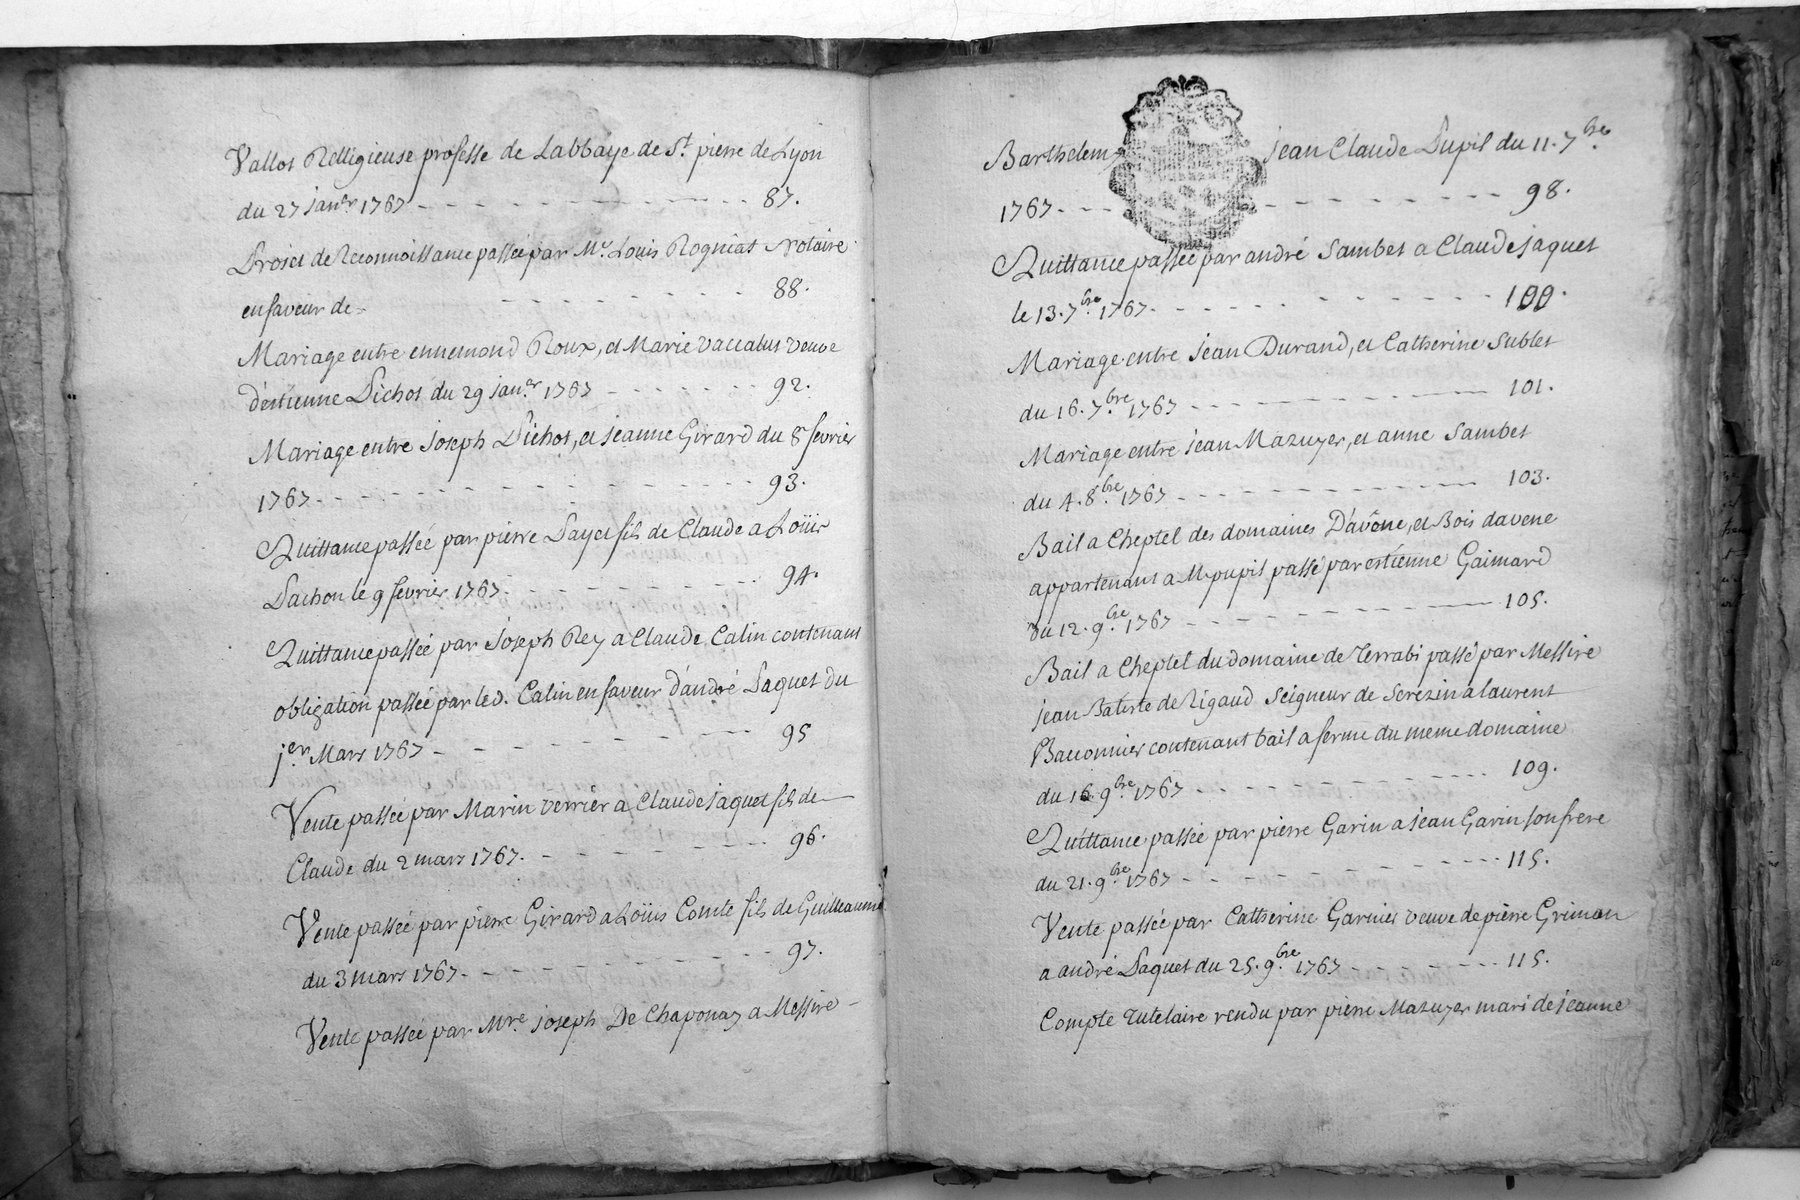 Vallot Relligieuse professe de Labbaye de St. pierre de Lyon
du 27 janer 1767 - - - - - - - - - - 87.
Projet de Reconnoissance passée par Me. Louis Rogniat Notaire
en faveur de = - - - - - - - - 88.
Mariage entre ennemond Roux, et Marie vaccalut veuve
d'estienne Pichot du 29 janer. 1767 - - - - - - 92.
Mariage entre joseph Pichot, et jeanne Girard du 8 fevrier
1767 - - - - - - - - - - - - 93.
Quittance passée par pierre Payet fils de Claude a Loüis
Pachon le 9 fevrier 1767 - - - - - - - - 94.
Quittance passée par joseph Rey a Claude Calin contenant
obligation passée par led. Calin en faveur d'andré Paquet du
jer. Mars 1767 - - - - - - - - 95
Vente passée par Marin verrier a Claude jaquet fils de
Claude du 2 mars 1767. - - - - - - - 96.
Vente passée par pierre Girard a Loüis Comte fils de Guilleaume
du 3 mars 1767 - - - - - - - - 97.
Vente passée par Mre. joseph De Chaponay a Messire
Barthelemy jean Claude Pupil du 11. 7bre.
1767 - - - - - - - - - - 98.
Quittance passée par andré Sambet a Claude jaquet
le 13. 7bre. 1767. - - - - - - - - 100.
Mariage entre jean Durand, et Catherine Sublet
du 16. 7bre. 1767 - - - - - - - - 101.
Mariage entre jean Mazuyer, et anne Sambet
du 4. 8bre. 1767 - - - - - - - - 103.
Bail a Cheptel des domaines D'avône, et Bois davene
appartenant a M. pupil passé par estienne Gaimard
du 12. 9bre. 1767 - - - - - - - - 105.
Bail a Cheptel du domaine de Terrabi passé par Messire
jean Batiste de Rigaud Seigneur de Serezin a laurent
Bacconnier contenant bail a ferme du meme domaine
du 16. 9bre. 1767 - - - - - - - - 109.
Quittance passée par pierre Garin a jean Garin son frere
du 21. 9bre. 1767 - - - - - - - - 115.
Vente passée par Catherine Garnier veuve de pierre Grimon
a andré Paquet du 25. 9bre. 1767 - - - - - - 115.
Compte Tutelaire rendu par pierre Mazuyer mari de jeanne